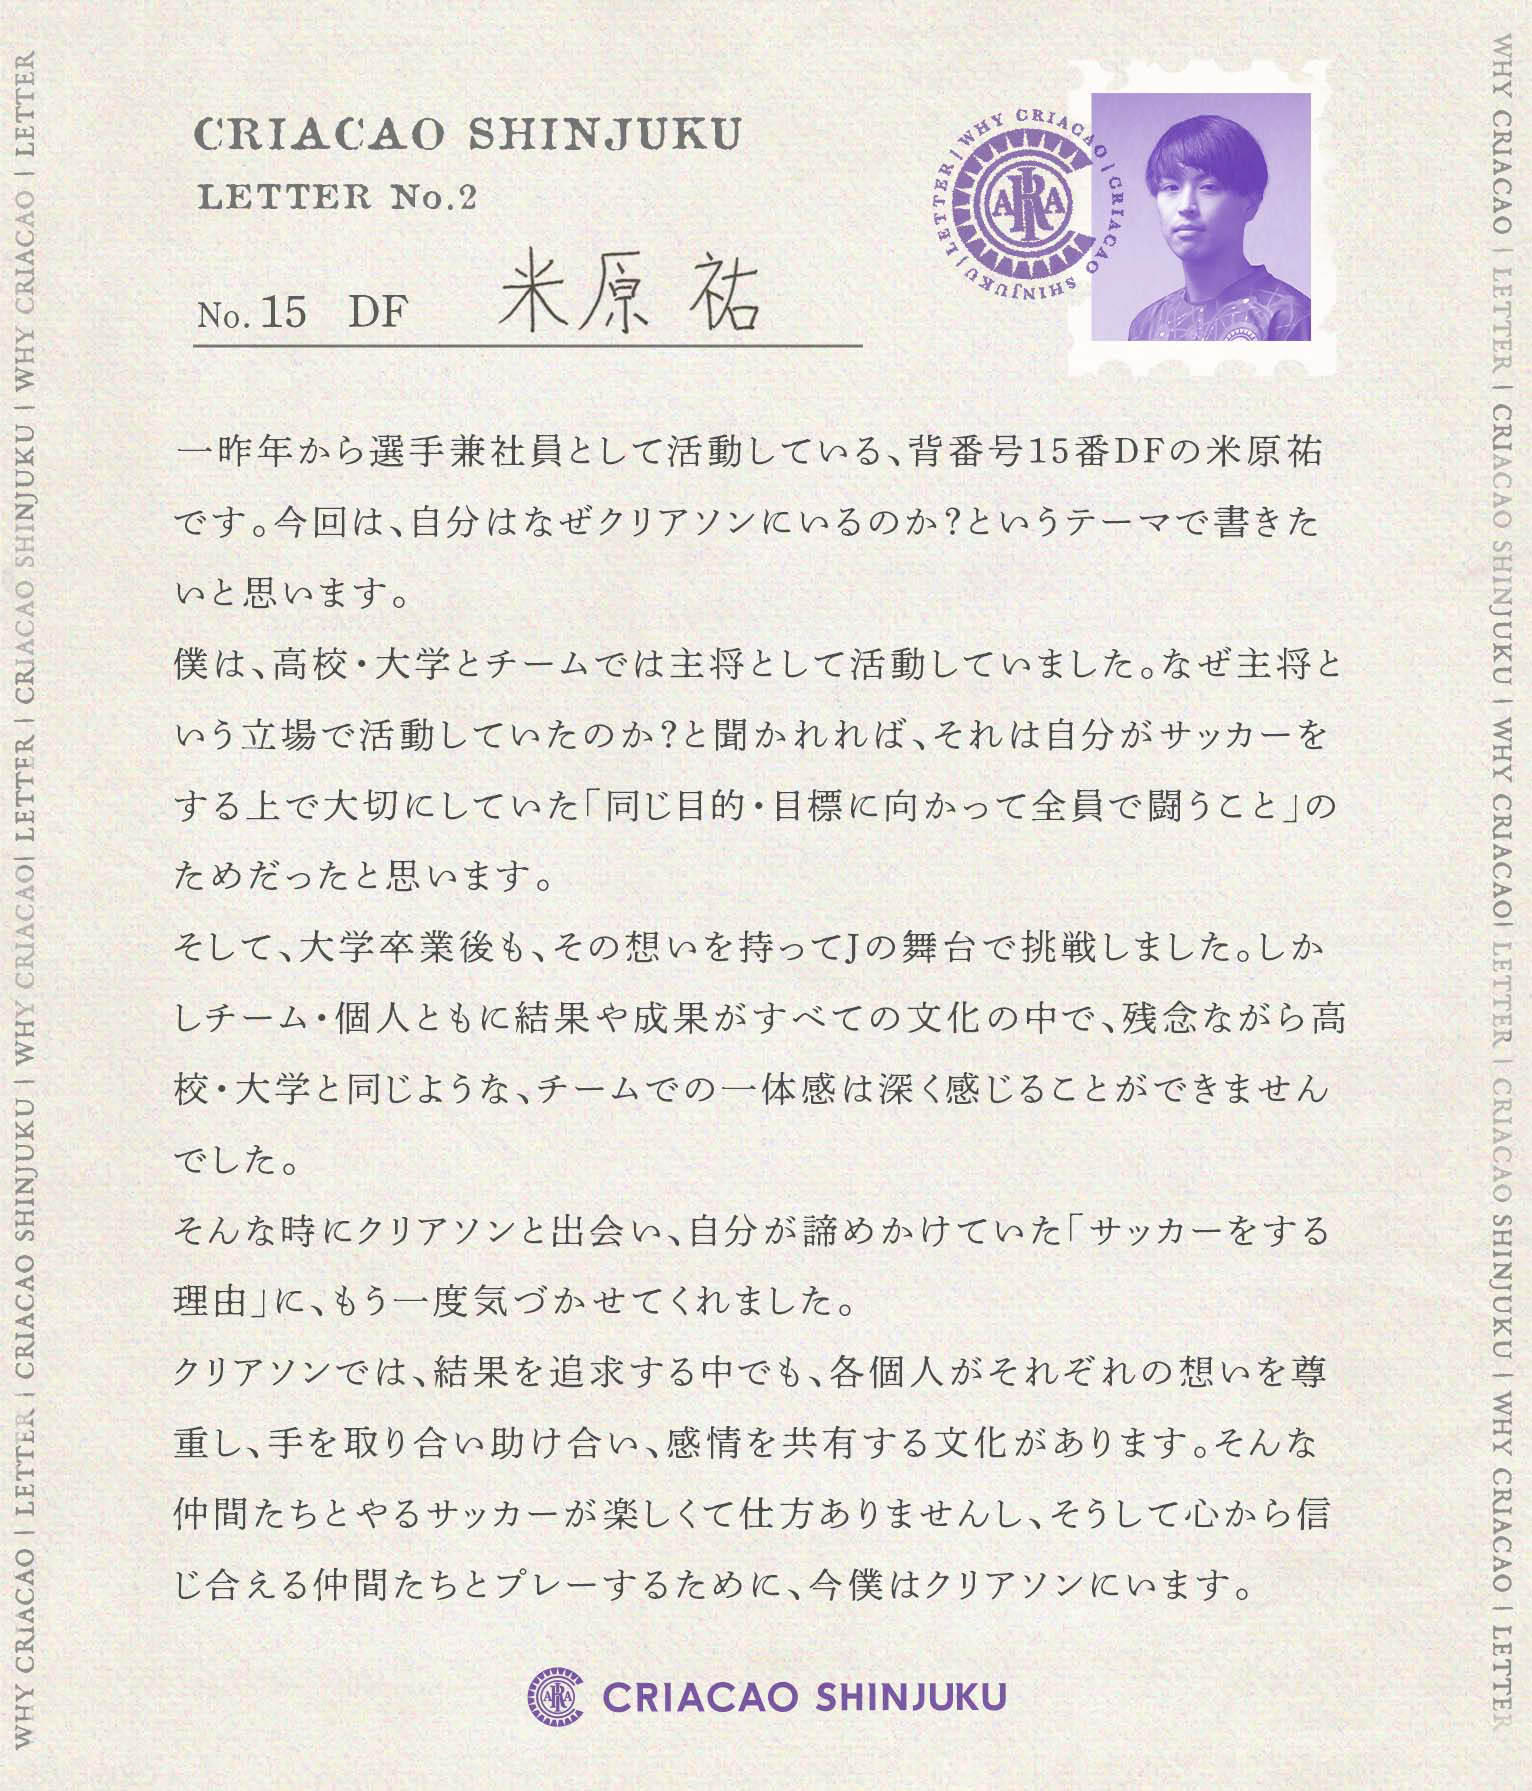 CRIACAO SHINJUKU
LETTER No.2
No. 15 DF 米原 祐
WHY CRIACAO | CRIACAO SHINJUKU | LETTER |
CRIA
一昨年から選手兼社員として活動している、背番号15番DFの米原祐
です。今回は、自分はなぜクリアソンにいるのか?というテーマで書きた
いと思います。
僕は、高校・大学とチームでは主将として活動していました。なぜ主将と
いう立場で活動していたのか?と聞かれれば、それは自分がサッカーを
する上で大切にしていた「同じ目的・目標に向かって全員で闘うこと」の
ためだったと思います。
そして、大学卒業後も、その想いを持ってJの舞台で挑戦しました。しか
しチーム・個人ともに結果や成果がすべての文化の中で、残念ながら高
校・大学と同じような、チームでの一体感は深く感じることができません
でした。
そんな時にクリアソンと出会い、自分が諦めかけていた「サッカーをする
理由」に、もう一度気づかせてくれました。
クリアソンでは、結果を追求する中でも、各個人がそれぞれの想いを尊
重し、手を取り合い助け合い、感情を共有する文化があります。そんな
仲間たちとやるサッカーが楽しくて仕方ありませんし、そうして心から信
じ合える仲間たちとプレーするために、今僕はクリアソンにいます。
CRIA
CRIACAO SHINJUKU
WHY CRIACAO | LETTER | CRIACAO SHINJUKU | WHY CRIACAO| LETTER | CRIACAO SHINJUKU | WHY CRIACAO | LETTER
WHY CRIACAO | LETTER | CRIACAO SHINJUKU | WHY CRIACAO| LETTER | CRIACAO SHINJUKU | WHY CRIACAO | LETTER